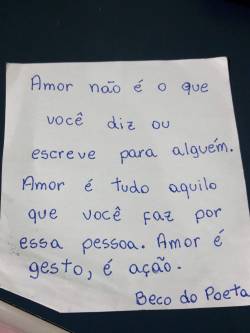 Amor não é o que
você diz ou
escreve para alguém.
Amor é tudo aquilo
que você faz por
essa pessoa. Amor é
gesto, é ação.
Beco do Poeta